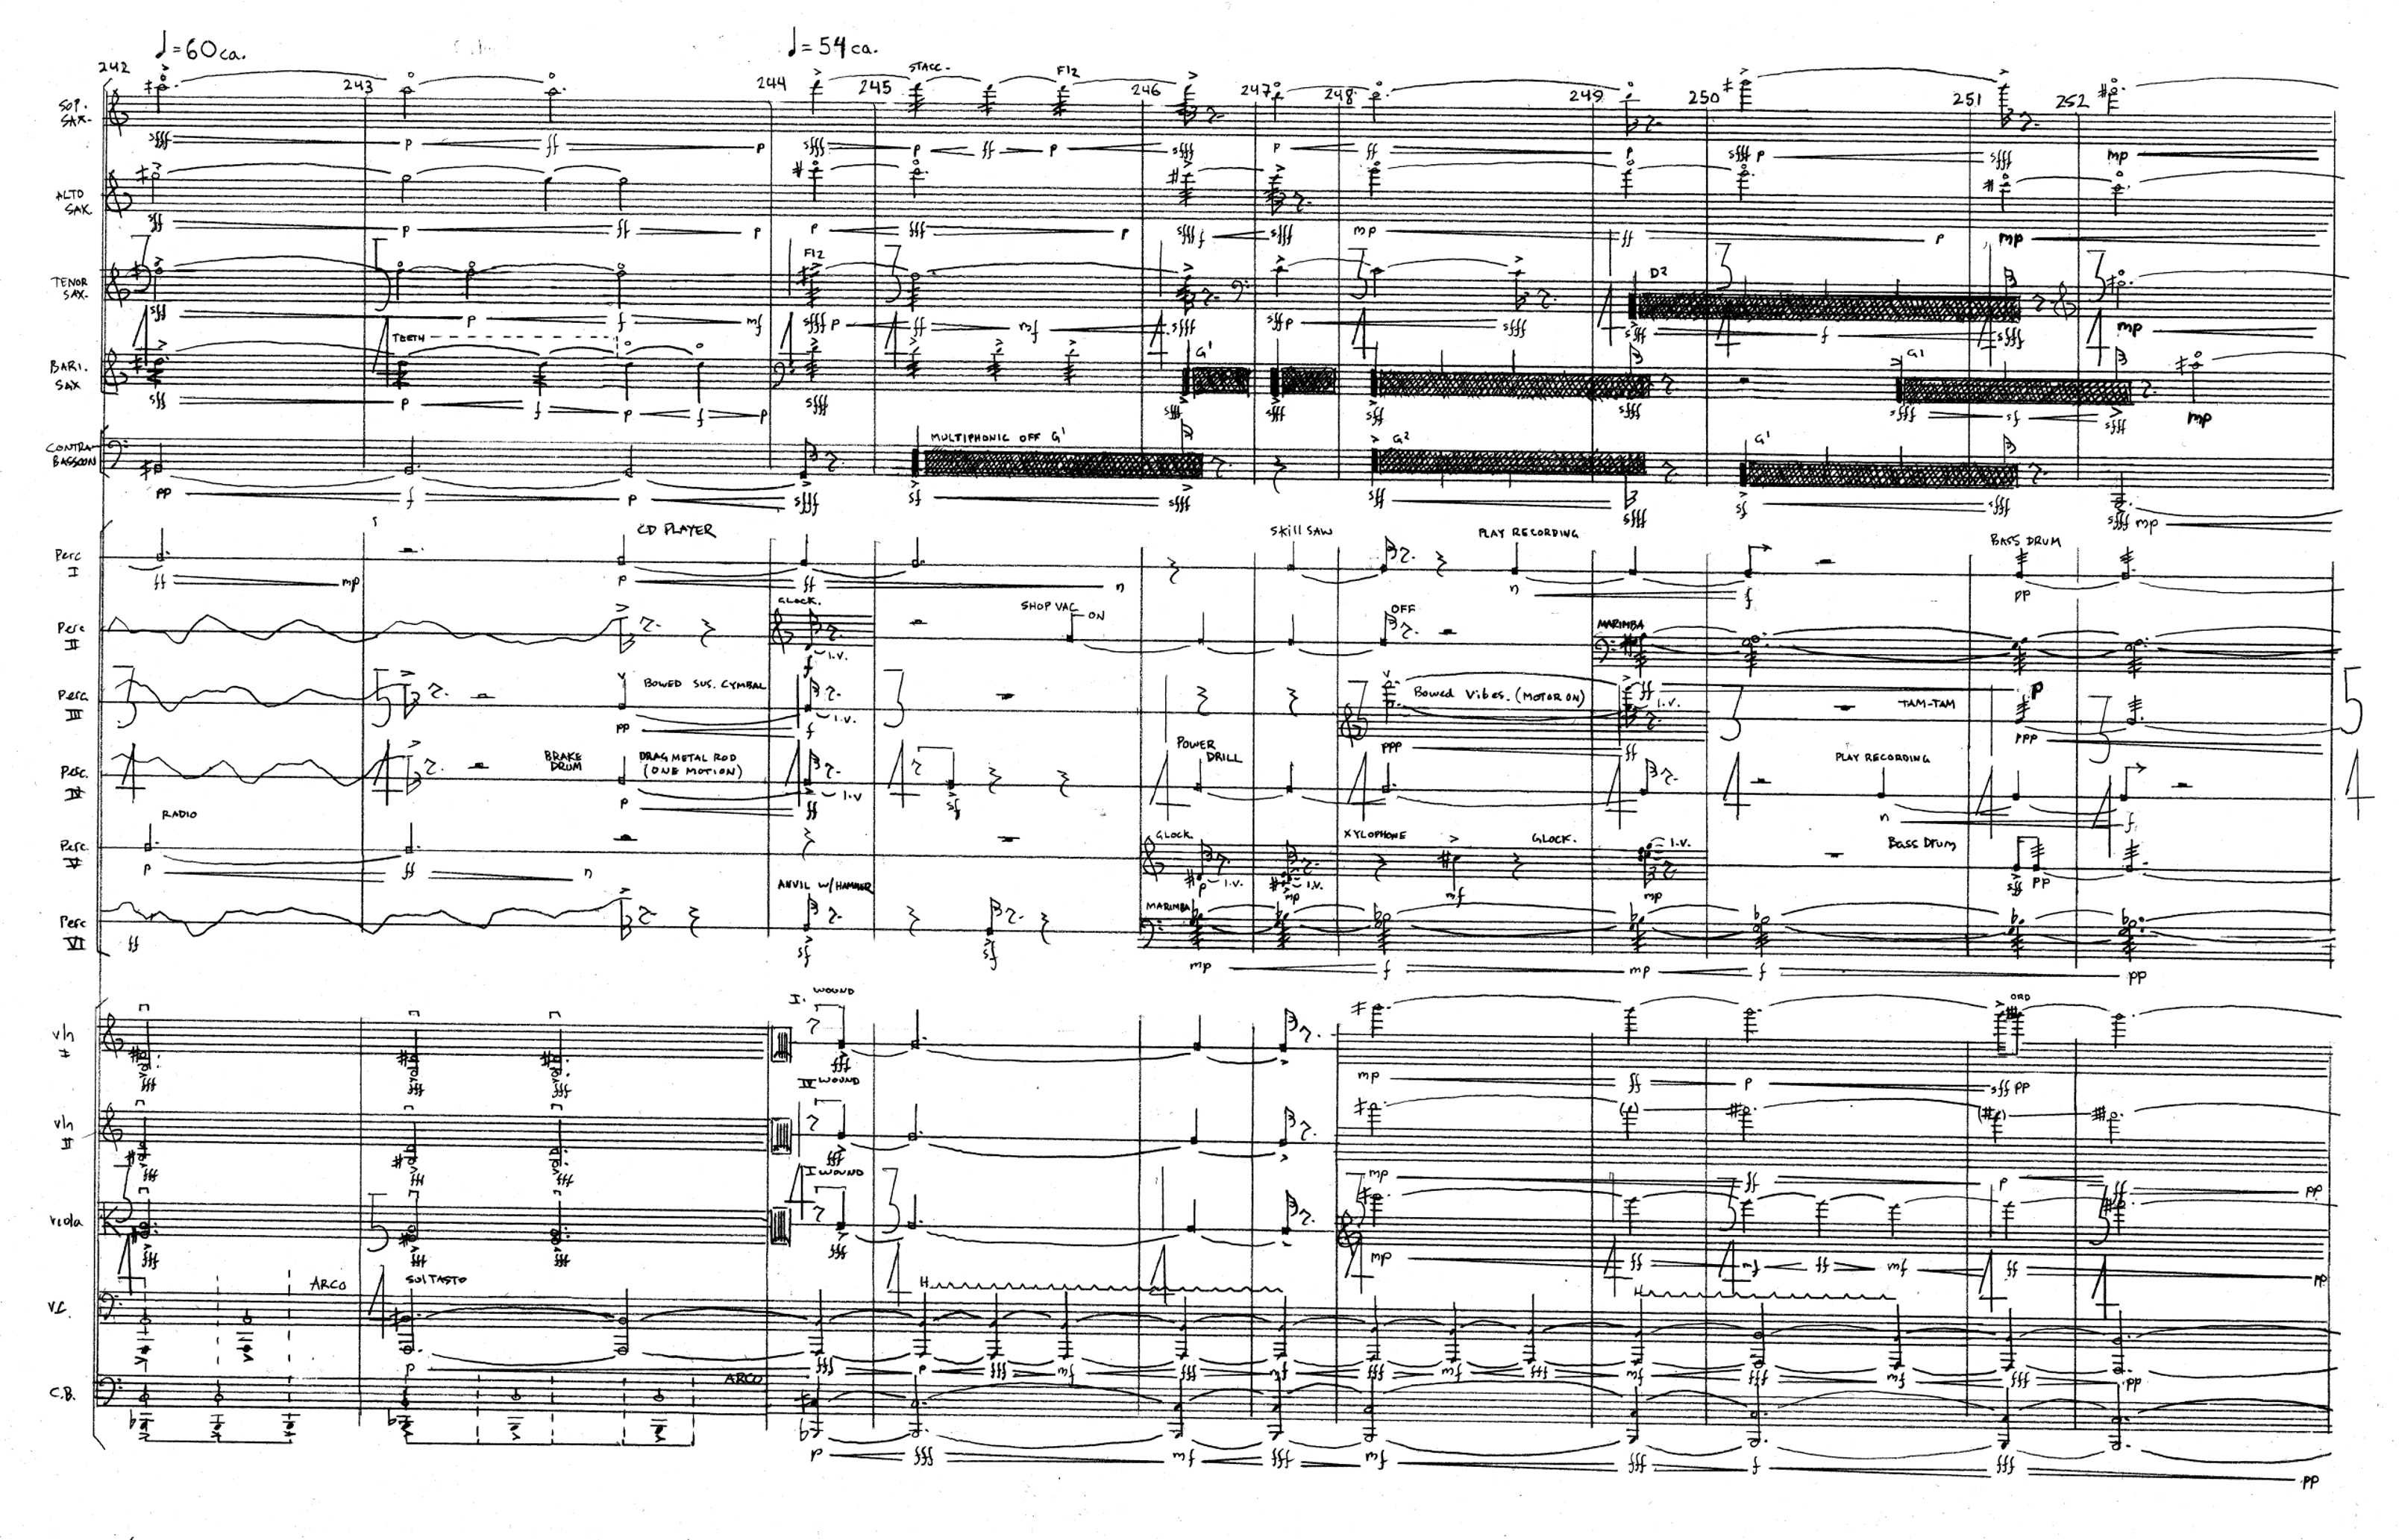 ♩=60ca. ♩=54ca.
242 243 244 245 246 247 248 249 250 251 252
STACC. F12
SOP. SAX.
sfff p ff p sfff p ff p sfff p ff p sfff p sfff mp
ALTO SAX
sff p ff p p fff p sfff f sfff mp ff p mp
TENOR SAX.
F12 D2
sff p f mf sfff p ff mf sfff sff p sfff sff f sfff mp
3 5 1 3 1 3 1 3 1 3
4 4 4 4 4 4 4 4 4 4
TEETH
BARI. SAX
G1 G1
sff p f p f p sfff sfff sfff sff sfff sfff sf sfff mp
CONTRA BASSOON
MULTIPHONIC OFF G1 G2 G1
pp f p sfff sf sfff sff sfff sf sfff sfff mp
Perc I
CD PLAYER SKILL SAW PLAY RECORDING BASS DRUM
ff mp p ff n n f pp
Perc II
GLOCK. SHOP VAC ON OFF MARIMBA
f l.v. ff p
Perc. III
BOWED SUS. CYMBAL Bowed Vibes. (MOTOR ON) TAM-TAM
pp f l.v. ppp ff l.v. ppp
5
4
Perc. IV
BRAKE DRUM DRAG METAL ROD (ONE MOTION) POWER DRILL PLAY RECORDING
p ff l.v. sf n f
Perc. V
RADIO GLOCK XYLOPHONE GLOCK. Bass Drum
p ff n p l.v. mp l.v. mf mp l.v. sff pp
Perc VI
ANVIL W/HAMMER MARIMBA
ff sf sf mp f mp f pp
vln I
I. WOUND ORD
fff fff fff fff mp ff p sff pp
vln II
IV WOUND
fff fff fff fff mp ff p ff pp
viola
I WOUND
fff fff fff fff mp ff mf ff mf ff pp
V.C.
ARCO SUL TASTO H H
p fff p fff mf fff mf fff mf fff mf fff mf fff pp
C.B.
ARCO
p fff mf fff mf fff f fff pp